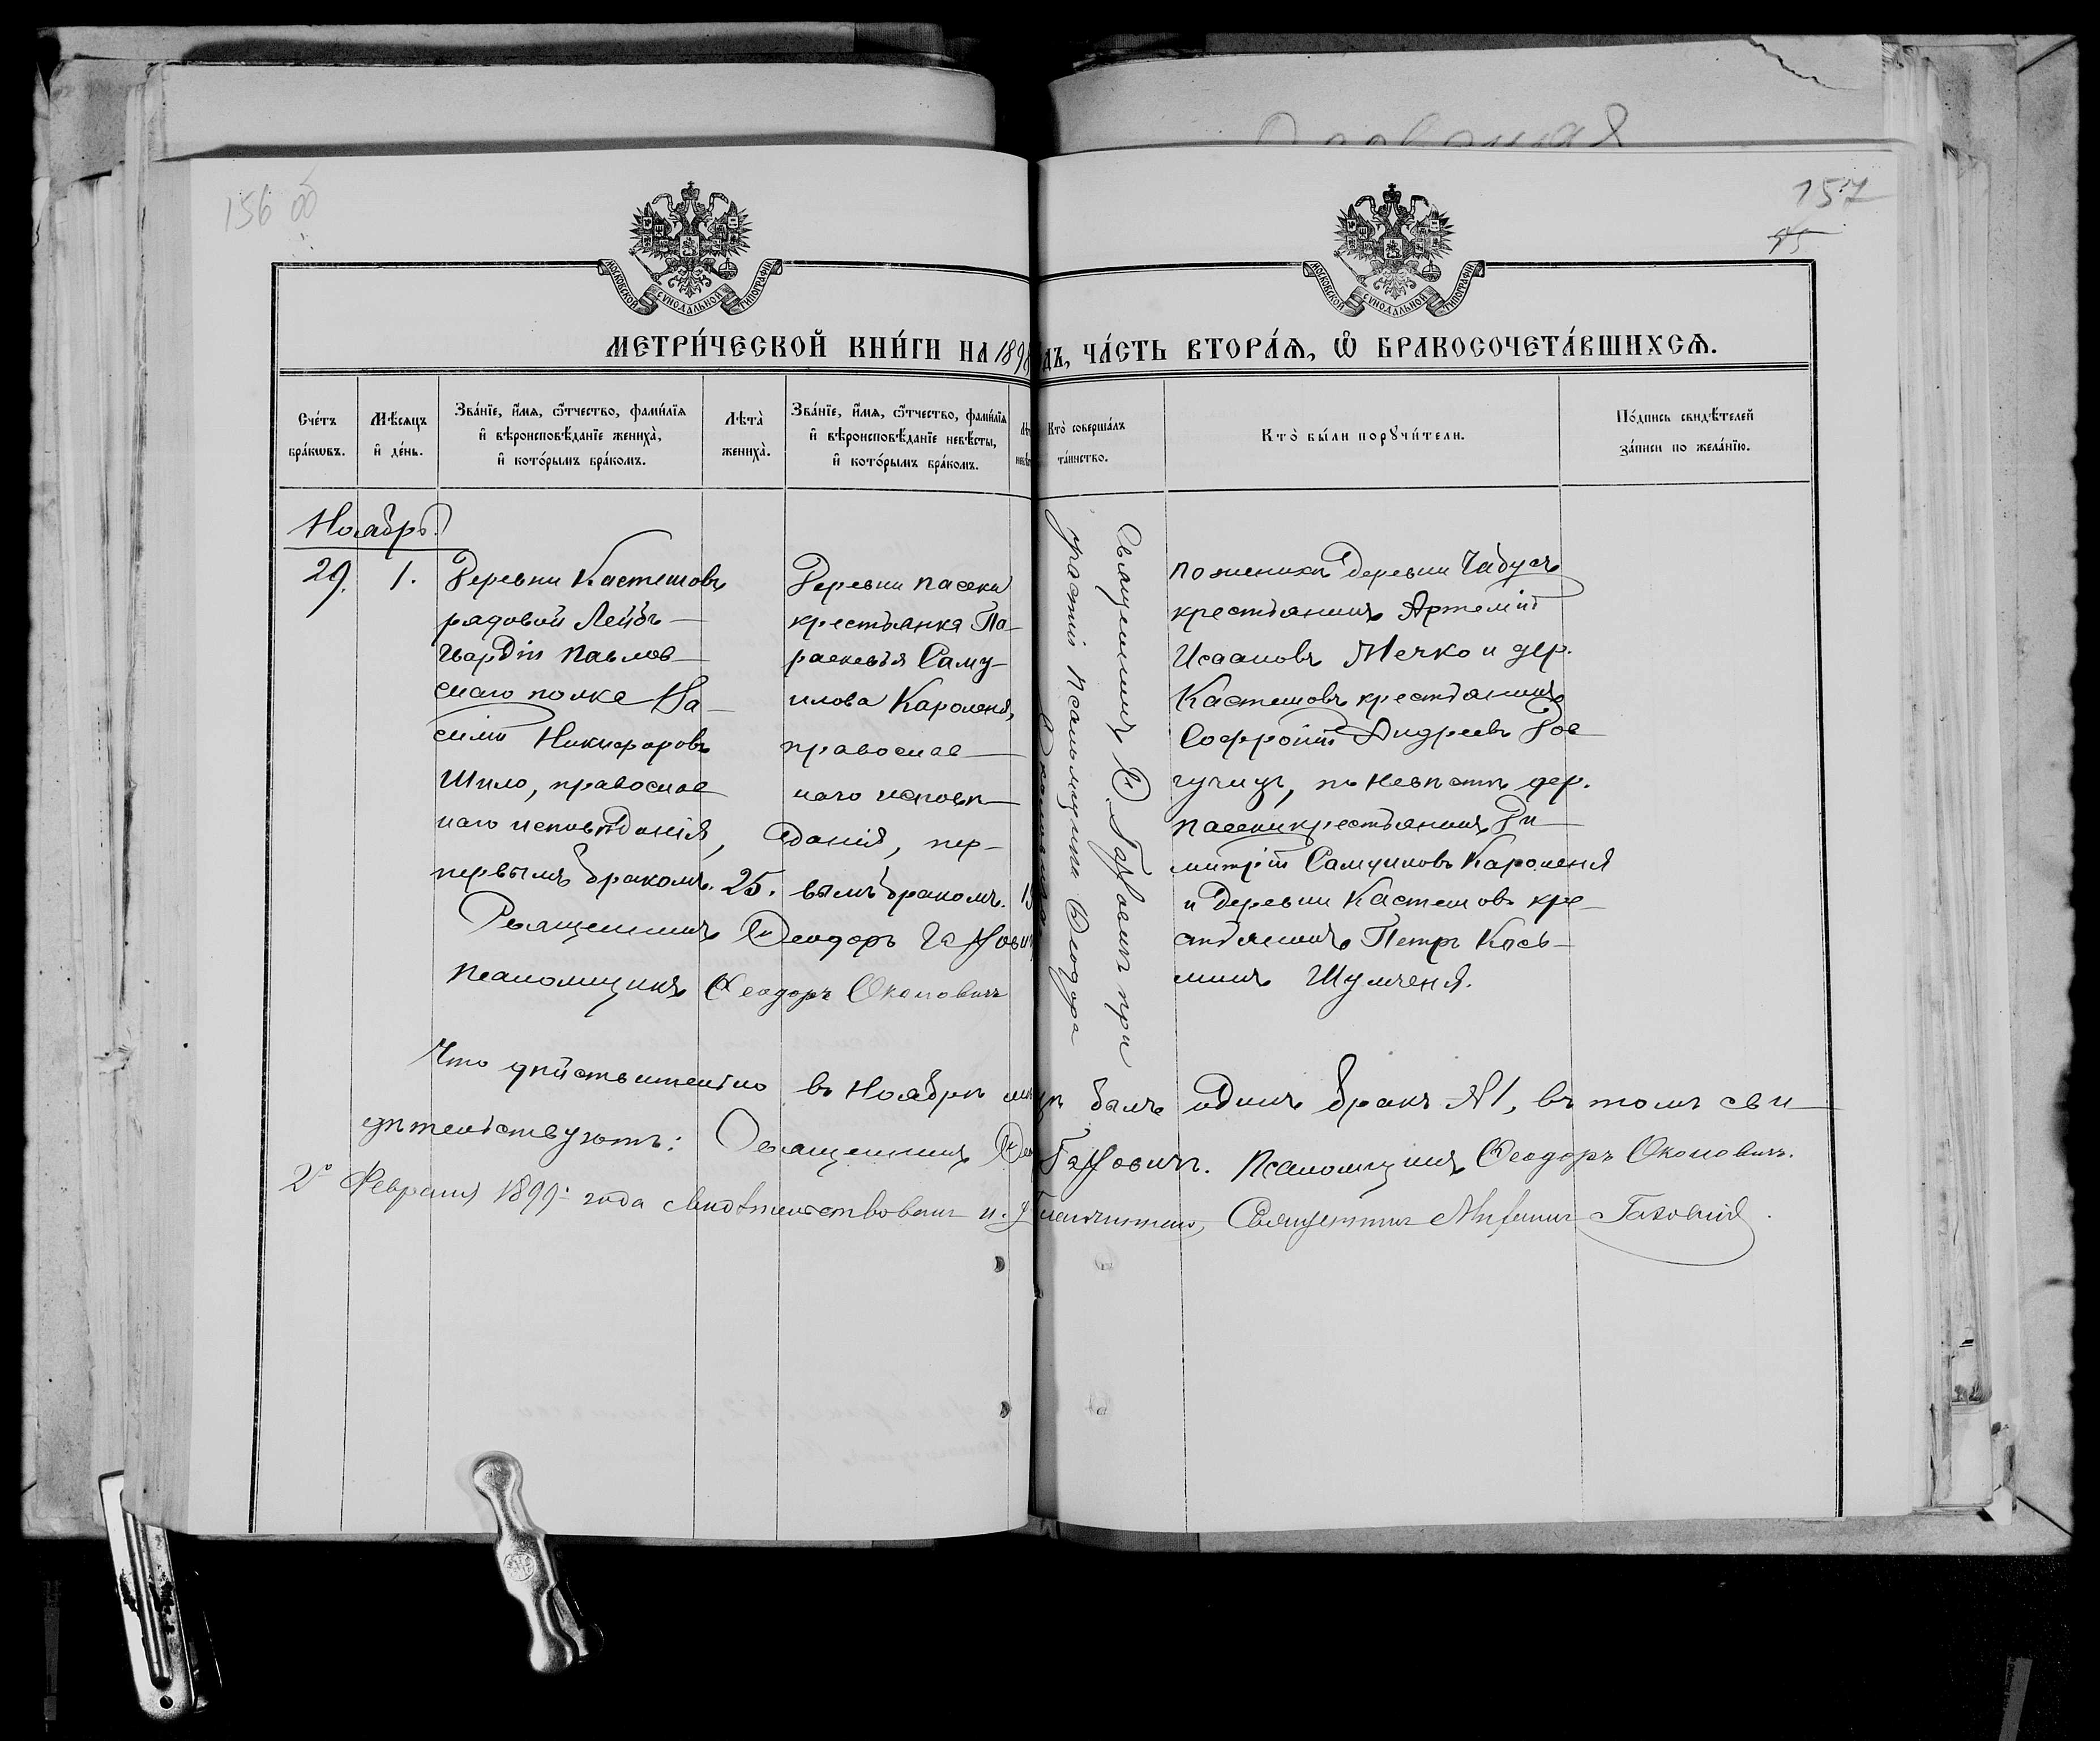 156 об
157
МОСКОВСКОЙ СѴНОДАЛЬНОЙ ТИПОГРАФІИ
МОСКОВСКОЙ СѴНОДАЛЬНОЙ ТИПОГРАФІИ
МЕТРИ́ЧЕСКОЙ КНИ́ГИ НА 1898
дъ, ЧА́СТЬ ВТОРА́Ѧ, Ѡ҆ БРАКОСОЧЕТА́ВШИХСѦ.
Сче́тъ
бра́кѡвъ.
Мѣ́сяцъ
и҆ де́нь.
Зва́нїе, и҆́мѧ, ѻ҆́тчество, фами́лїѧ
и҆ вѣроисповѣ́данїе жениха̀,
и҆ кото́рымъ бра́комъ.
Лѣта̀
жениха̀.
Зва́нїе, и҆́мѧ, ѻ҆́тчество, фами́лїѧ
и҆ вѣроисповѣ́данїе невѣ́сты,
и҆ кото́рымъ бра́комъ.
Кто̀ соверша́лъ
та́инство.
Кто̀ бы́ли порꙋчи́тели.
По́дпись свидѣ́телей
за́писи по жела́нїю.
Ноябрь.
29.
1.
Деревни Кастешовъ
рядовой Лейбъ-
Гвардіи Павлов-
скаго полка Ва-
силій Никифоровъ
Шило, православ
наго исповѣданія,
первымъ бракомъ.
25.
Деревни Пасеки
крестьянка Па-
раскевія Саму-
илова Кароленя,
православ-
наго исповѣ-
данія, пер-
вымъ бракомъ.
Священникъ Ѳ. Газловичъ при
участіи Псаломщика Ѳеодора
Околовича
По женихѣ деревни Чабусъ
крестьянинъ Артемій
Исааковъ Мечко и дер.
Кастешовъ крестьянинъ
Софроній Андреевъ
по невѣстѣ дер.
Пасеки крестьянинъ Ди-
митрій Самуиловъ Кароленя
и деревни Кастешовъ кре-
стьянинъ Петръ Кось-
минъ Шумченя.
Священникъ Ѳеодоръ
Псаломщикъ Ѳеодоръ Околовичъ
Что дѣйствительно въ Ноябрѣ мѣ-цѣ былъ одинъ бракъ №1, въ томъ сви-
дѣтельствуютъ: Священникъ Псаломщикъ Ѳеодоръ Околовичъ.
2го Февраля 1899 года свидѣтельствовалъ и. д. Благочиннаго, Священникъ